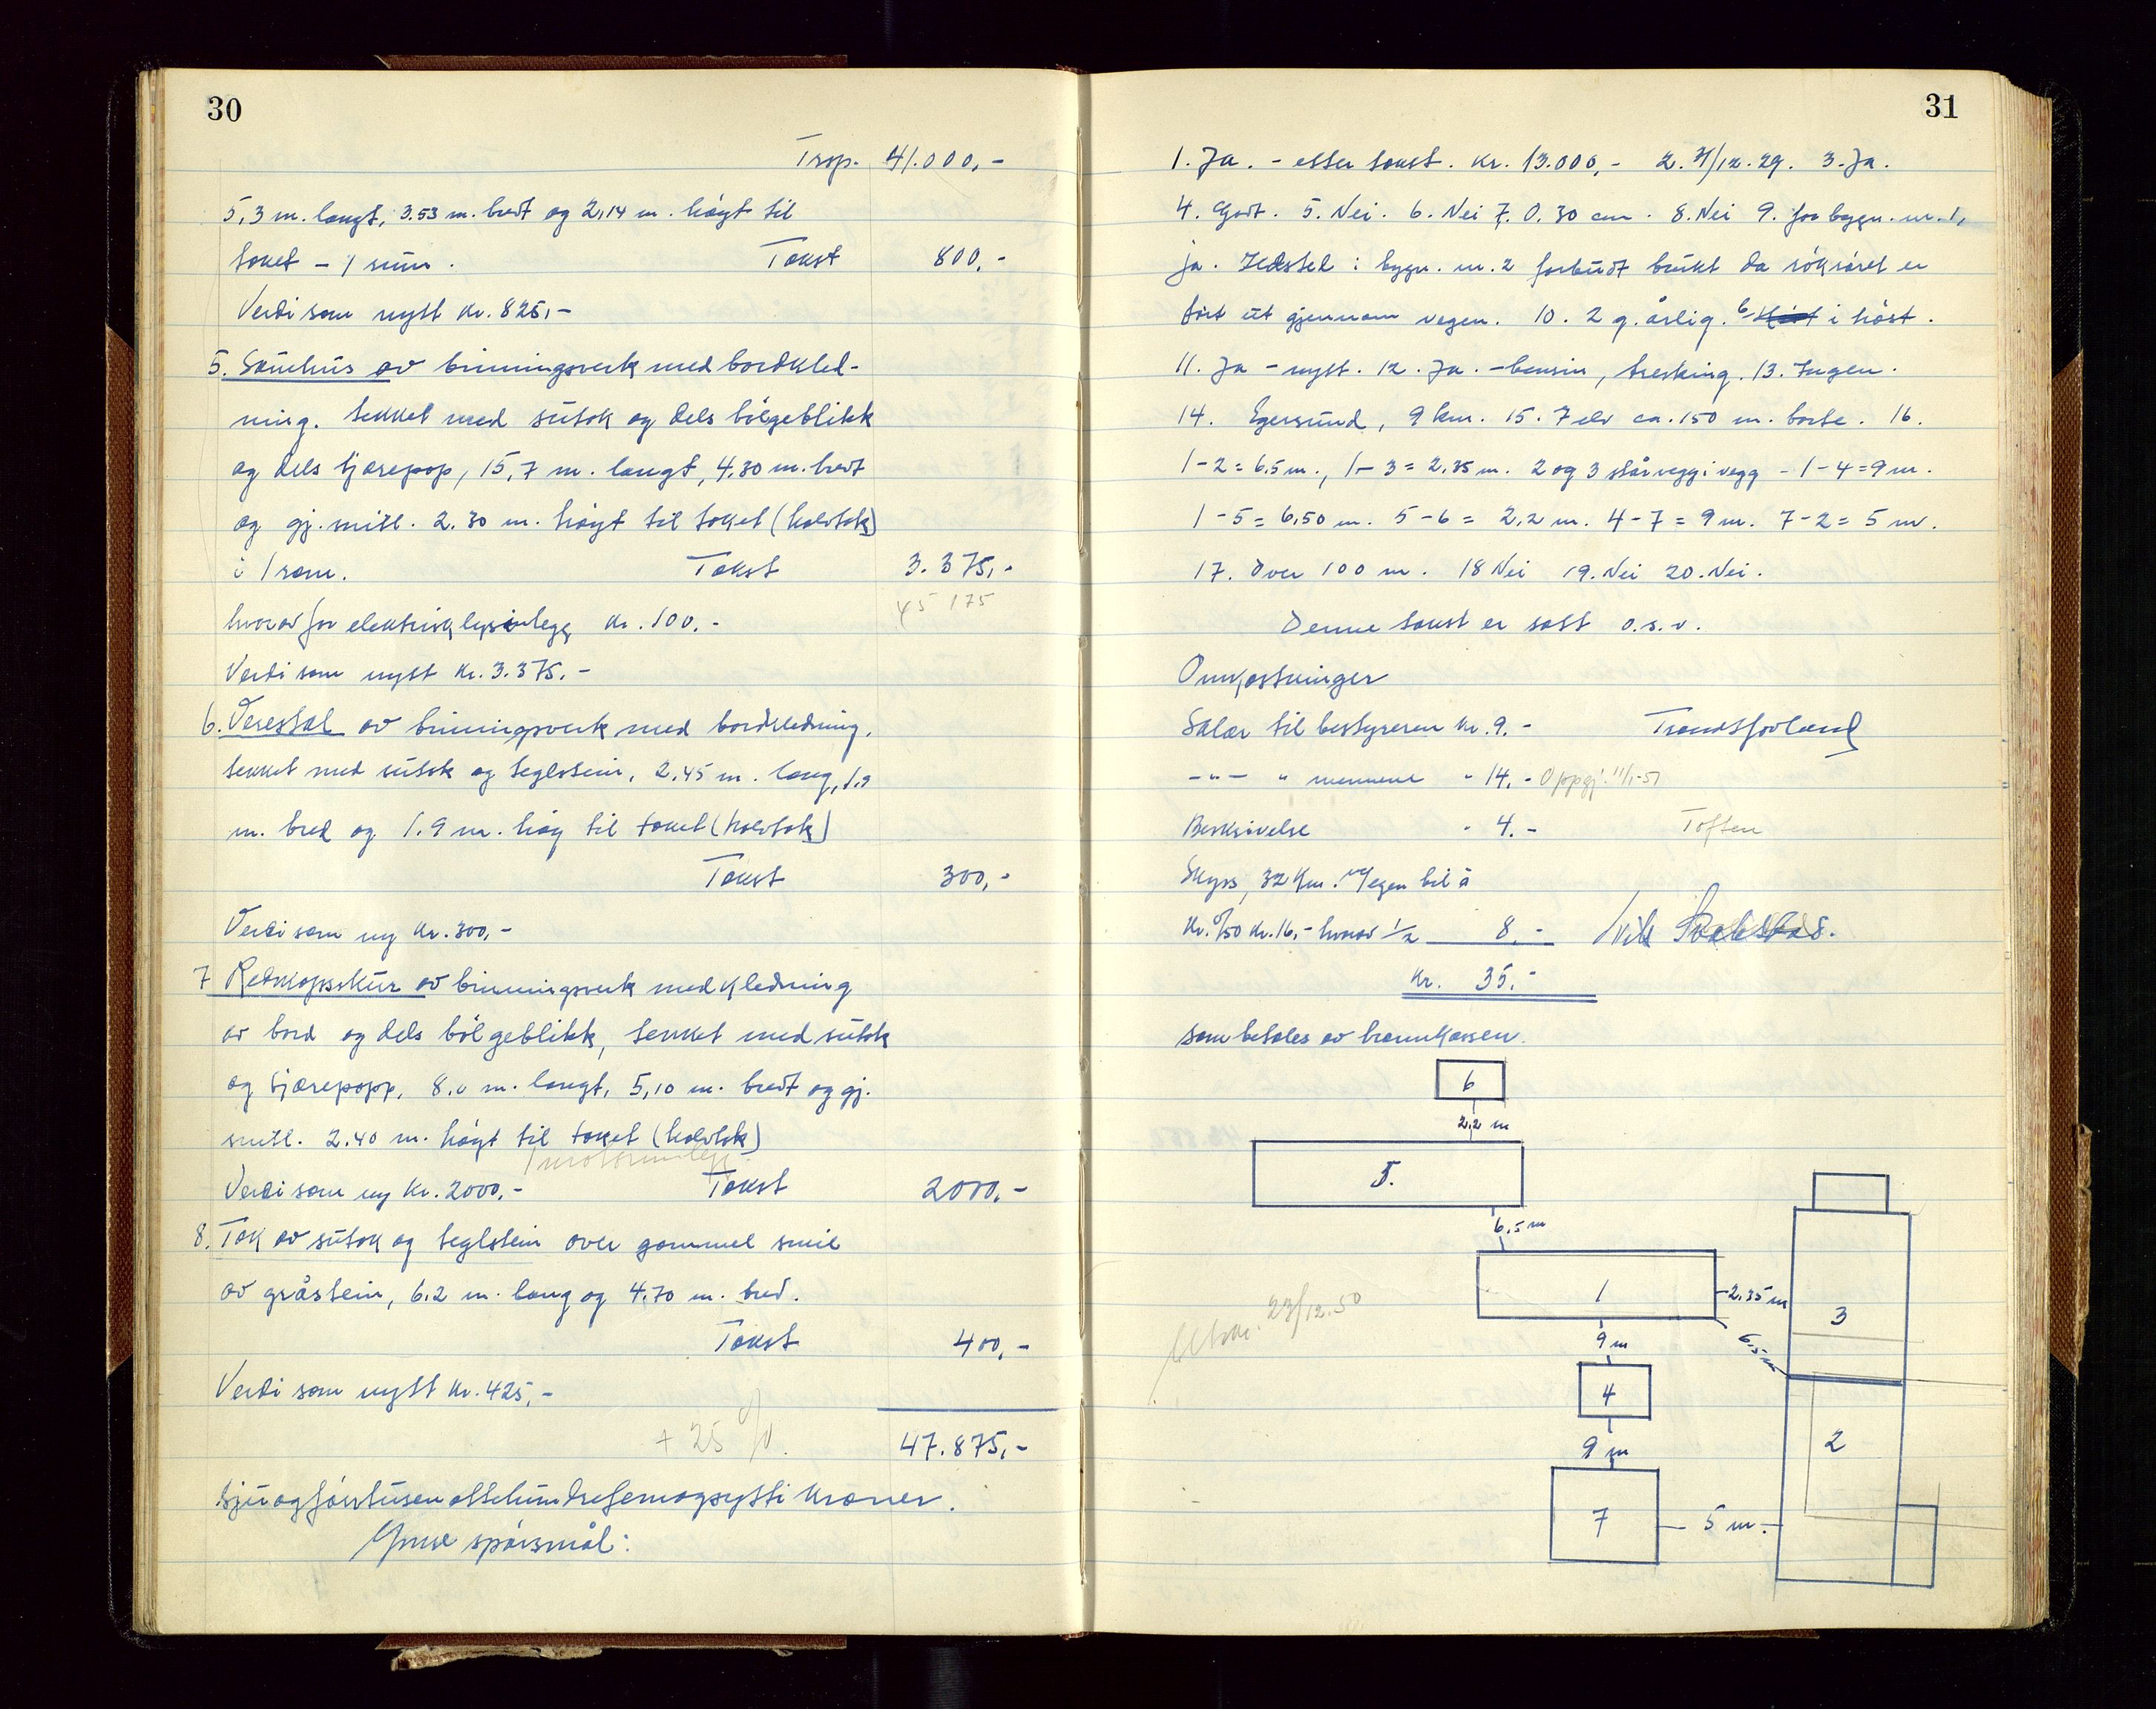 30
Trsp. 41.000,-
5,3 m. langt, 3.53 m. bredt og 2,14 m. høyt til
taket - 1 rum. Takst 800,-
Verdi som nytt kr. 825,-
5. Sauehus av binningsverk med bordkled-
ning. tekket med sutak og dels bölgeblikk
og dels tjærepap, 15,7 m. langt, 4,30 m. bredt
og gj. mitl. 2.30 m. høyt til taket (halvtak)
i 1 rom. Takst 3.375,-
hvorav for elektrisk lysinlegg kr. 100,-
45 175
Verdi som nytt kr. 3.375,-
6. Verestal av binningsverk med bordkledning,
tekket med sutak og teglstein, 2.45 m. lang, 1.9
m. bred og 1.9 m. høg til taket (halvtak)
Takst 300,-
Verdi som ny kr. 300,-
7 Redskapsskur av binningsverk med kledning
av bord og dels bölgeblikk, tekket med sutak
og tjærepapp, 8.0 m. langt, 5,10 m. bredt og gj.
snitl. 2.40 m. høgt til taket (halvtak)
1 motorinlegg.
Verdi som ny kr. 2000,- Takst 2000,-
8. Tak av sutak og teglstein over gammel smie
av gråstein, 6.2 m. lang og 4.70 m. bred.
Takst 400,-
Verdi som nytt kr. 425,-
+ 25 %. 47.875,-
sjuogförtusenottehundrefemogsytti kroner.
Ymse spörsmål:
31
1. Ja. - etter takst. kr. 13.000,- 2. 31/12.29. 3. Ja.
4. Godt. 5. Nei. 6. Nei 7. 0.30 cm. 8. Nei 9. for bygn. nr. 1,
ja. Ildsted i bygn. nr. 2 forbudt brukt da röksöret er
fört ut gjennom vegen. 10. 2 g. årlig. i höst.
11. Ja - nytt. 12. Ja. - bensin, tresking. 13. Ingen.
14. Egersund, 9 km. 15. ? elv ca. 150 m. borte. 16.
1-2 = 6,5 m., 1-3 = 2,35 m. 2 og 3 står vegg i vegg - 1-4 = 9 m.
1-5 = 6,50 m. 5-6 = 2,2 m. 4-7 = 9 m. 7-2 = 5 m.
17. Over 100 m. 18 Nei 19. Nei 20. Nei.
Denne takst er satt o.s.v.
Omkostninger
Salær til bestyreren kr. 9.-
-"- " mennene " 14.- Oppgj. 11/1-51
Beskrivelse " 4.- Toften
Skyss, 32 km. m/egen bil à
kr. 0/50 kr. 16,- hvorav 1/2 8.-
kr. 35.-
som betales av brannkassen.
6
2,2 m
5.
6,5 m
1
2,35 m
3
9 m
6,5 m
4
2
9 m
7
5 m.
23/12.50